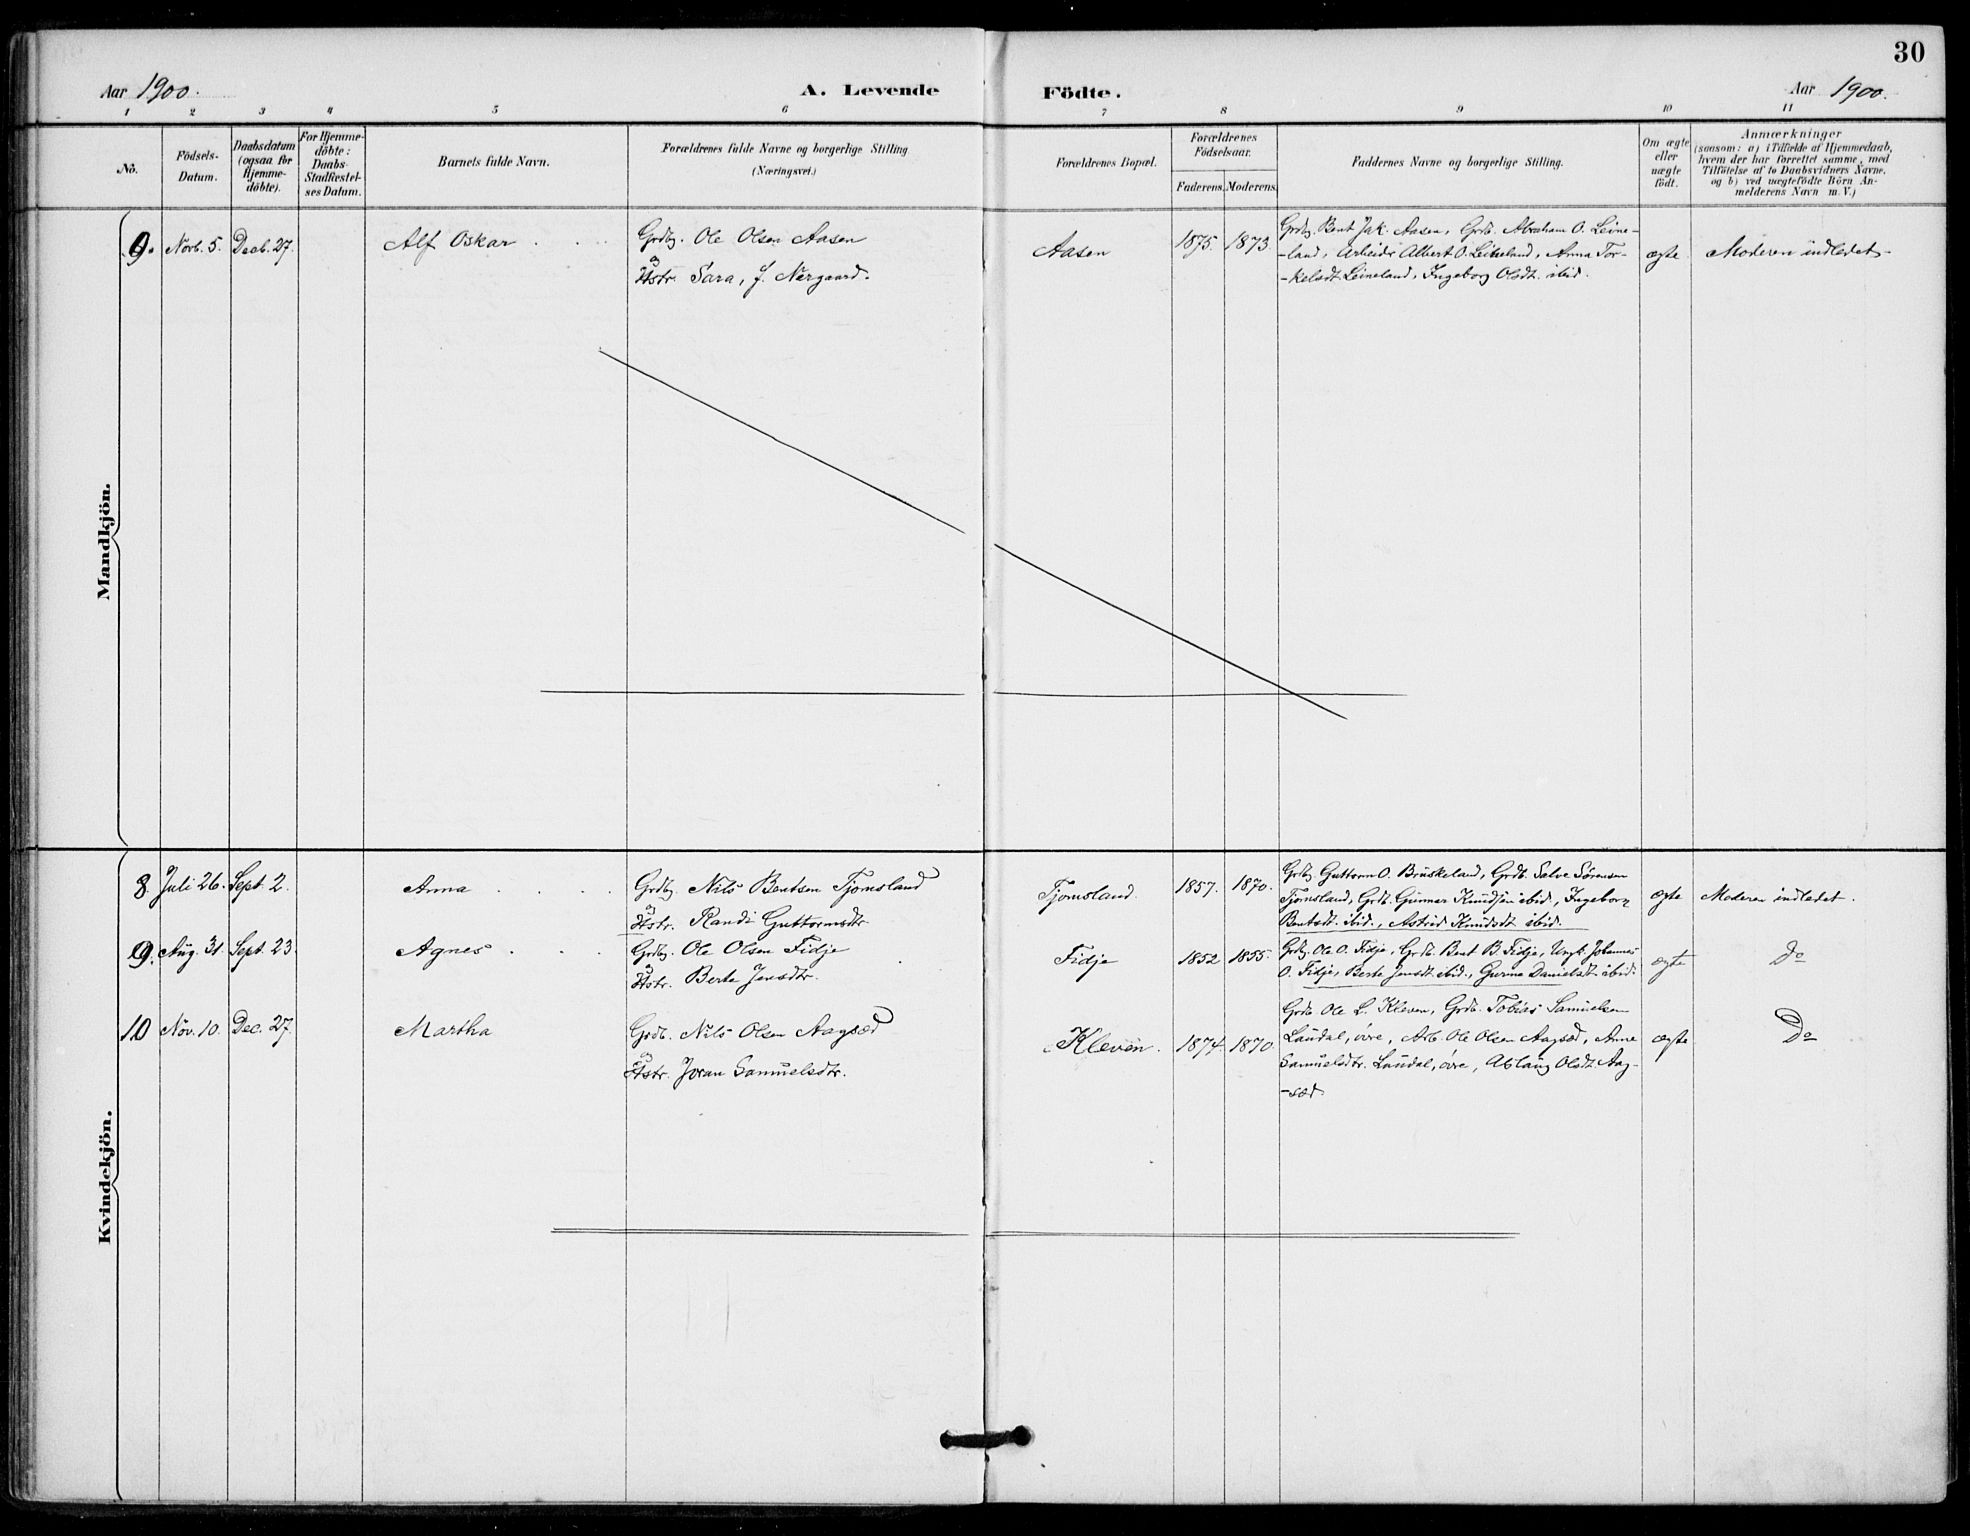 30
Aar 1900. A. Levende Födte. Aar 1900.
1 2 3 4 5 6 7 8 9 10 11
No.
Födsels-
Datum.
Daabsdatum
(ogsaa for
Hjemme-
döbte).
For Hjemme-
döbte:
Daabs-
Stadfæstel-
ses Datum.
Barnets fulde Navn.
Forældrenes fulde Navne og borgerlige Stilling
(Næringsvei.)
Forældrenes Bopæl.
Forældrenes
Födselsaar.
Faderens. Moderens.
Faddernes Navne og borgerlige Stilling.
Om ægte
eller
uægte
födt.
Anmærkninger
(saasom: a) i Tilfælde af Hjemmedaab,
hvem der har forrettet samme, med
Tilföielse af to Daabsvidners Navne,
og b) ved uægtefödte Börn An-
melderens Navn m. V.)
Mandkjön.
9. Novb. 5. Decb. 27. Alf Oskar
Grdbg. Ole Olsen Aasen
og
Hstr. Sara, f. Nergaard.
Aasen
1875. 1873.
Grdbg. Bent Jak. Aasen, Grdb. Abraham O. Leine-
-land, Arbeider Albert O. Leineland, Anna Tor-
-kelsdt. Leineland, Ingeborg Olsdt. ibid.
ægte
Moderen indledet.
Kvindekjön.
8. Juli 26. Sept. 2. Anna
Grdbg. Nils Bentsen Tjomsland
og
Hstr. Randi Guttormsdtr.
Tjomsland.
1857. 1870.
Grdbg. Guttorm O. Bruskeland, Grdb. Salve Sörensen
Tjomsland, Grdb. Gunnar Knudsen ibid., Ingeborg
Bentsdt. ibid., Astrid Knudsdt. ibid.
ægte
Moderen indledet.
9. Aug. 31. Sept. 23. Agnes
Grdbg. Ole Olsen Fidje
og
Hstr. Berte Jensdtr.
Fidje
1852 1855.
Grdbg. Ole O. Fidje, Grdb. Bent B. Fidje, Ungk. Johannes
O. Fidje, Berte Jensdt. ibid., Gurine Danielsdt. ibid.
ægte
Do
10 Nov. 10. Dec. 27. Martha
Grdb. Nils Olsen Aagsæd
og
Hstr. Joran Samuelsdtr.
Kleven.
1874. 1870.
Grdb. Ole L. Kleven, Grdb. Tobias Samuelsen
Laudal, övre, Arb. Ole Olsen Aagsæd, Anne
Samuelsdtr. Laudal, övre, Aslaug Olsdt. Aag-
-sæd.
ægte
Do